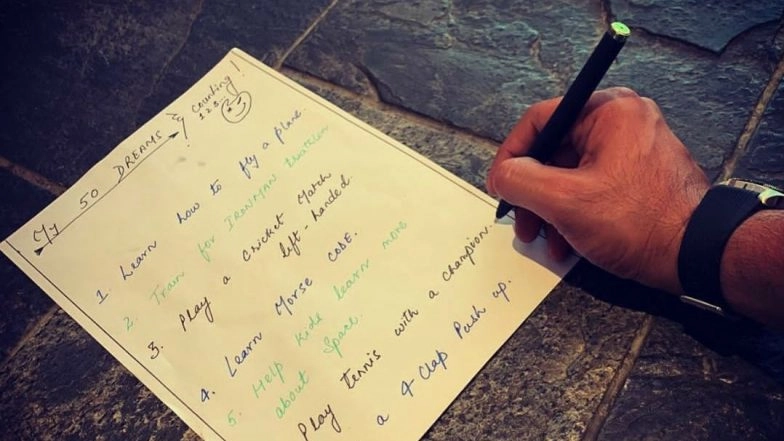 My 50 DREAMS & Counting!
1 2 3...
1. Learn how to fly a plane.
2. Train for IRONMAN triathlon
3. Play a Cricket Match
left-handed.
4. Learn Morse CODE.
5. Help kids learn more
about Space.
Play Tennis with a champion.
a 4 Clap Push up.